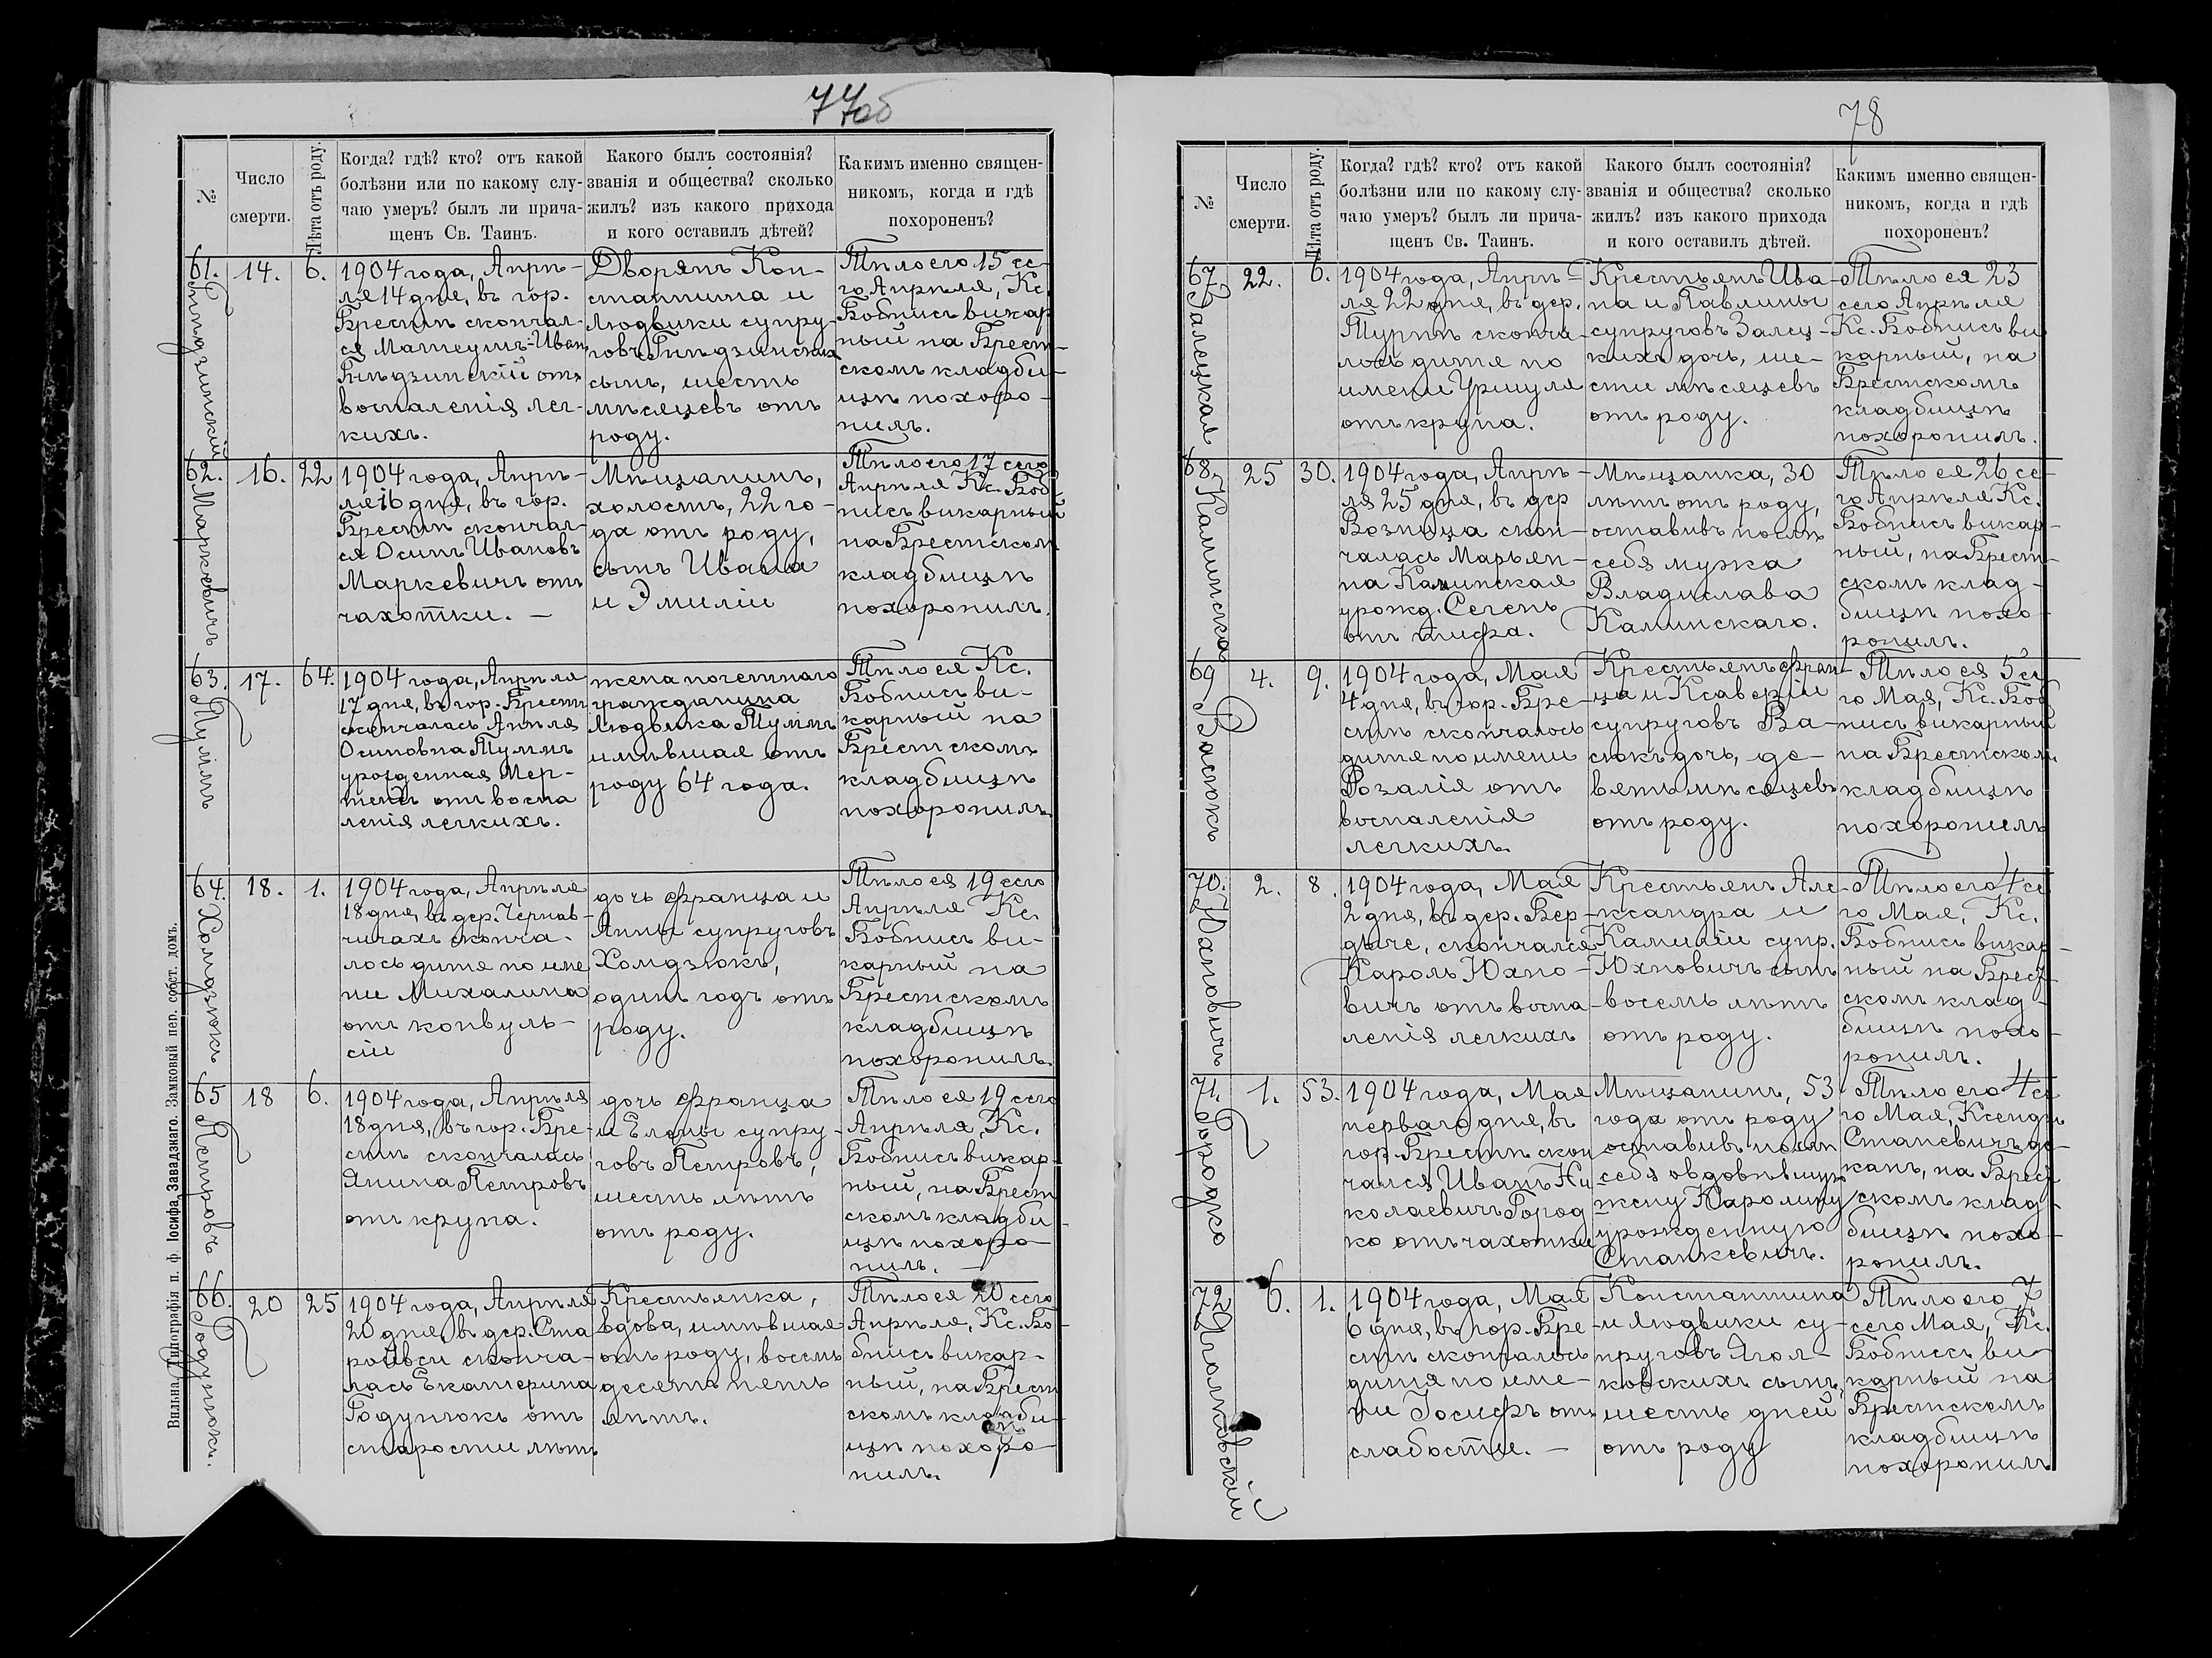 77об
№
Число
смерти.
Лѣта отъ роду.
Когда? гдѣ? кто? отъ какой
болѣзни или по какому слу-
чаю умеръ? былъ ли прича-
щенъ Св. Таинъ.
Какого былъ состоянія?
званія и общества? сколько
жилъ? изъ какого прихода
и кого оставилъ дѣтей?
Какимъ именно священ-
никомъ, когда и гдѣ
похороненъ?
61.
14.
6.
1904 года, Апрѣ-
ля 14 дня, въ гор.
Брестѣ скончал-
ся Матеушъ-Иван
Гнѣдзинскій отъ
воспаленія лег-
кихъ.
Дворянъ Кон-
стантина и
Людвики супру-
говъ Гнѣдзинскихъ
сынъ, шесть
мѣсяцевъ отъ
роду.
Тѣло его 15 се-
го Апрѣля, Кс.
Бобнисъ викар
ный на Брест-
скомъ кладби-
щѣ похоро-
нилъ.
Гнѣдзинскій
62.
16.
22
1904 года, Апрѣ-
ля 16 дня, въ гор.
Брестѣ скончал-
ся Осипъ Ивановъ
Маркевичъ отъ
чахотки. —
Мѣщанинъ,
холостъ, 22 го-
да отъ роду,
сынъ Ивана
и Эмиліи
Тѣло его 17 сего
Апрѣля Кс. Боб
нисъ викарный
на Брестском
кладбищѣ
похоронилъ.
Маркевичъ
63.
17.
64.
1904 года, Апрѣля
17 дня, въ гор. Брестѣ
скончалась Анеля
Осиповна Туммъ
урожденная Мер-
тенсъ отъ воспа
ленія легкихъ.
жена почетнаго
гражданина
Людвика Туммъ
имѣвшая отъ
роду 64 года.
Тѣло ея Кс.
Бобнисъ ви-
карный на
Брестскомъ
кладбищѣ
похоронилъ.
Туммъ
64.
18.
1.
1904 года, Апрѣля
18 дня, въ дер. Чернав-
чицахъ сконча-
лось дитя по име
ни Михалина
отъ конвуль-
сіи
дочь Франца и
Анны супруговъ
Хомдзюкъ,
одинъ годъ отъ
роду.
Тѣло ея 19 сего
Апрѣля Кс.
Бобнисъ ви-
карный на
Брестскомъ
кладбищѣ
похоронилъ.
Хомдзюкъ
65
18
6.
1904 года, Апрѣля
18 дня, въ гор. Бре-
стѣ скончалась
Янина Петровъ
отъ крупа.
дочь Франца
и Елены супру-
говъ Петровъ,
шесть лѣтъ
отъ роду.
Тѣло ея 19 сего
Апрѣля, Кс.
Бобнисъ викар-
ный, на Брест
скомъ кладби-
щѣ похоро-
нилъ. —
Петровъ
66.
20
25
1904 года, Апрѣля
20 дня, въ дер. Ста
ройвси сконча-
лась Екатерина
Годунюкъ отъ
старости лѣтъ
Крестьянка,
вдова, имѣвшая
отъ роду, восемь
десятъ пять
лѣтъ.
Тѣло ея 20 сего
Апрѣля, Кс. Бо-
бнисъ викар-
ный, на Брест
скомъ кладби-
щѣ похоро-
нилъ.
Годунюкъ.
Вильна, Типографія п. ф. Іосифа Завадзкаго. Замковый пер. собст. домъ.
78
№
Число
смерти.
Лѣта отъ роду.
Когда? гдѣ? кто? отъ какой
болѣзни или по какому слу-
чаю умеръ? былъ ли прича-
щенъ Св. Таинъ.
Какого былъ состоянія?
званія и общества? сколько
жилъ? изъ какого прихода
и кого оставилъ дѣтей.
Какимъ именно священ-
никомъ, когда и гдѣ
похороненъ?
67.
22.
6.
1904 года, Апрѣ-
ля 22 дня, въ дер.
Турнѣ сконча-
лось дитя по
имени Уршуля
отъ крупа.
Крестьянъ Ива-
на и Павлины
супруговъ Залец-
кихъ дочь, ше-
сти мѣсяцевъ
отъ роду.
Тѣло ея 23
сего Апрѣля
Кс. Бобнисъ ви
карный, на
Брестскомъ
кладбищѣ
похоронилъ.
Залецкая
68.
25
30.
1904 года, Апрѣ-
ля 25 дня, въ дер
Возница скон-
чалась Марьян-
на Калинская
урожд. Сегень
отъ тифа.
Мѣщанка, 30
лѣтъ отъ роду,
оставивъ послѣ
себя мужа
Владислава
Калинскаго.
Тѣло ея 26 се-
го Апрѣля Кс.
Бобнисъ викар-
ный, на Брест-
скомъ клад-
бищѣ похо-
ронилъ.
Калинская
69
4.
9.
1904 года, Мая
4 дня, въ гор. Бре-
стѣ скончалось
дитя по имени
Розалія отъ
воспаленія
легкихъ.
Крестьянъ Фран-
ца и Ксаверіи
супруговъ Ва-
сюкъ дочь, де-
вять мѣсяцевъ
отъ роду.
Тѣло ея 5 се
го Мая, Кс. Боб
нисъ викарный
на Брестском.
кладбищѣ
похоронилъ
Васюкъ
70.
2.
8.
1904 года, Мая
2 дня, въ дер. Бер-
дыче, скончался
Кароль Юхно-
вичъ отъ воспа-
ленія легкихъ
Крестьянъ Але-
ксандра и
Камиліи супр.
Юхновичъ сынъ
восемь лѣтъ
отъ роду.
Тѣло его 4 се
го Мая, Кс.
Бобнисъ викар-
ный на Брест-
скомъ клад-
бищѣ похо-
ронилъ.
Юхновичъ
71.
1.
53.
1904 года, Мая
перваго дня, въ
гор. Брестѣ скон
чался Иванъ Ни
колаевичъ Город
ко отъ чахотки
Мѣщанинъ, 53
года отъ роду
оставивъ послѣ
себя овдовѣвшую
жену Каролину
урожденную
Станкевичъ.
Тѣло его 4 се
го Мая, Ксендзъ
Станевичъ де-
канъ, на Брест
скомъ клад-
бищѣ похо-
ронилъ.
Городко
72
6.
1.
1904 года, Мая
6 дня, въ гор. Бре
стѣ скончалось
дитя по име-
ни Іосифъ отъ
слабости. —
Константина
и Людвики су-
пруговъ Ягол-
ковскихъ сынъ,
шесть дней
отъ роду
Тѣло его 7
сего Мая, Кс.
Бобнисъ ви-
карный на
Брестскомъ
кладбищѣ
похоронилъ
Яголковскій